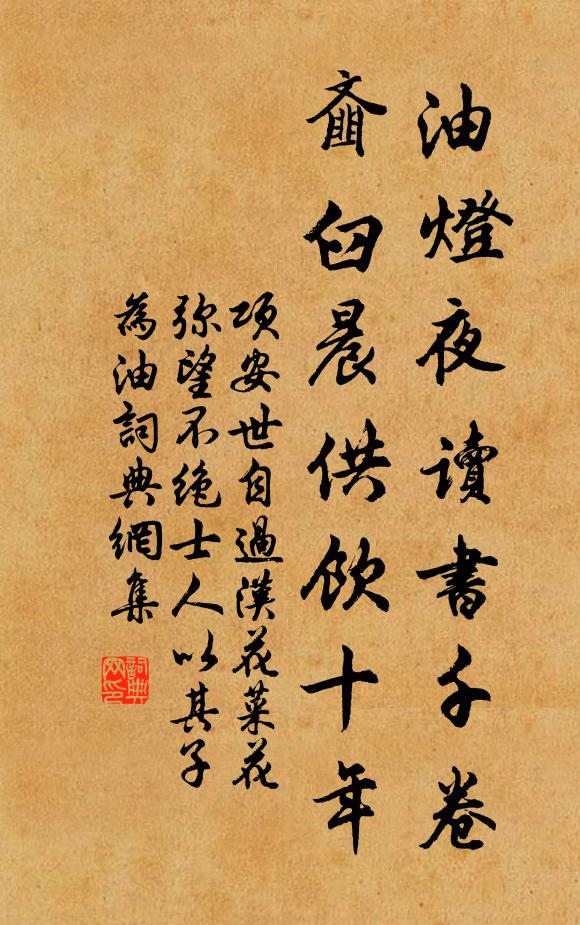 油燈夜讀書千卷
齑臼晨供飲十年
項安世自過漢花菜花
弥望不絶士人以其子
為油詞典網集
詞典
网印